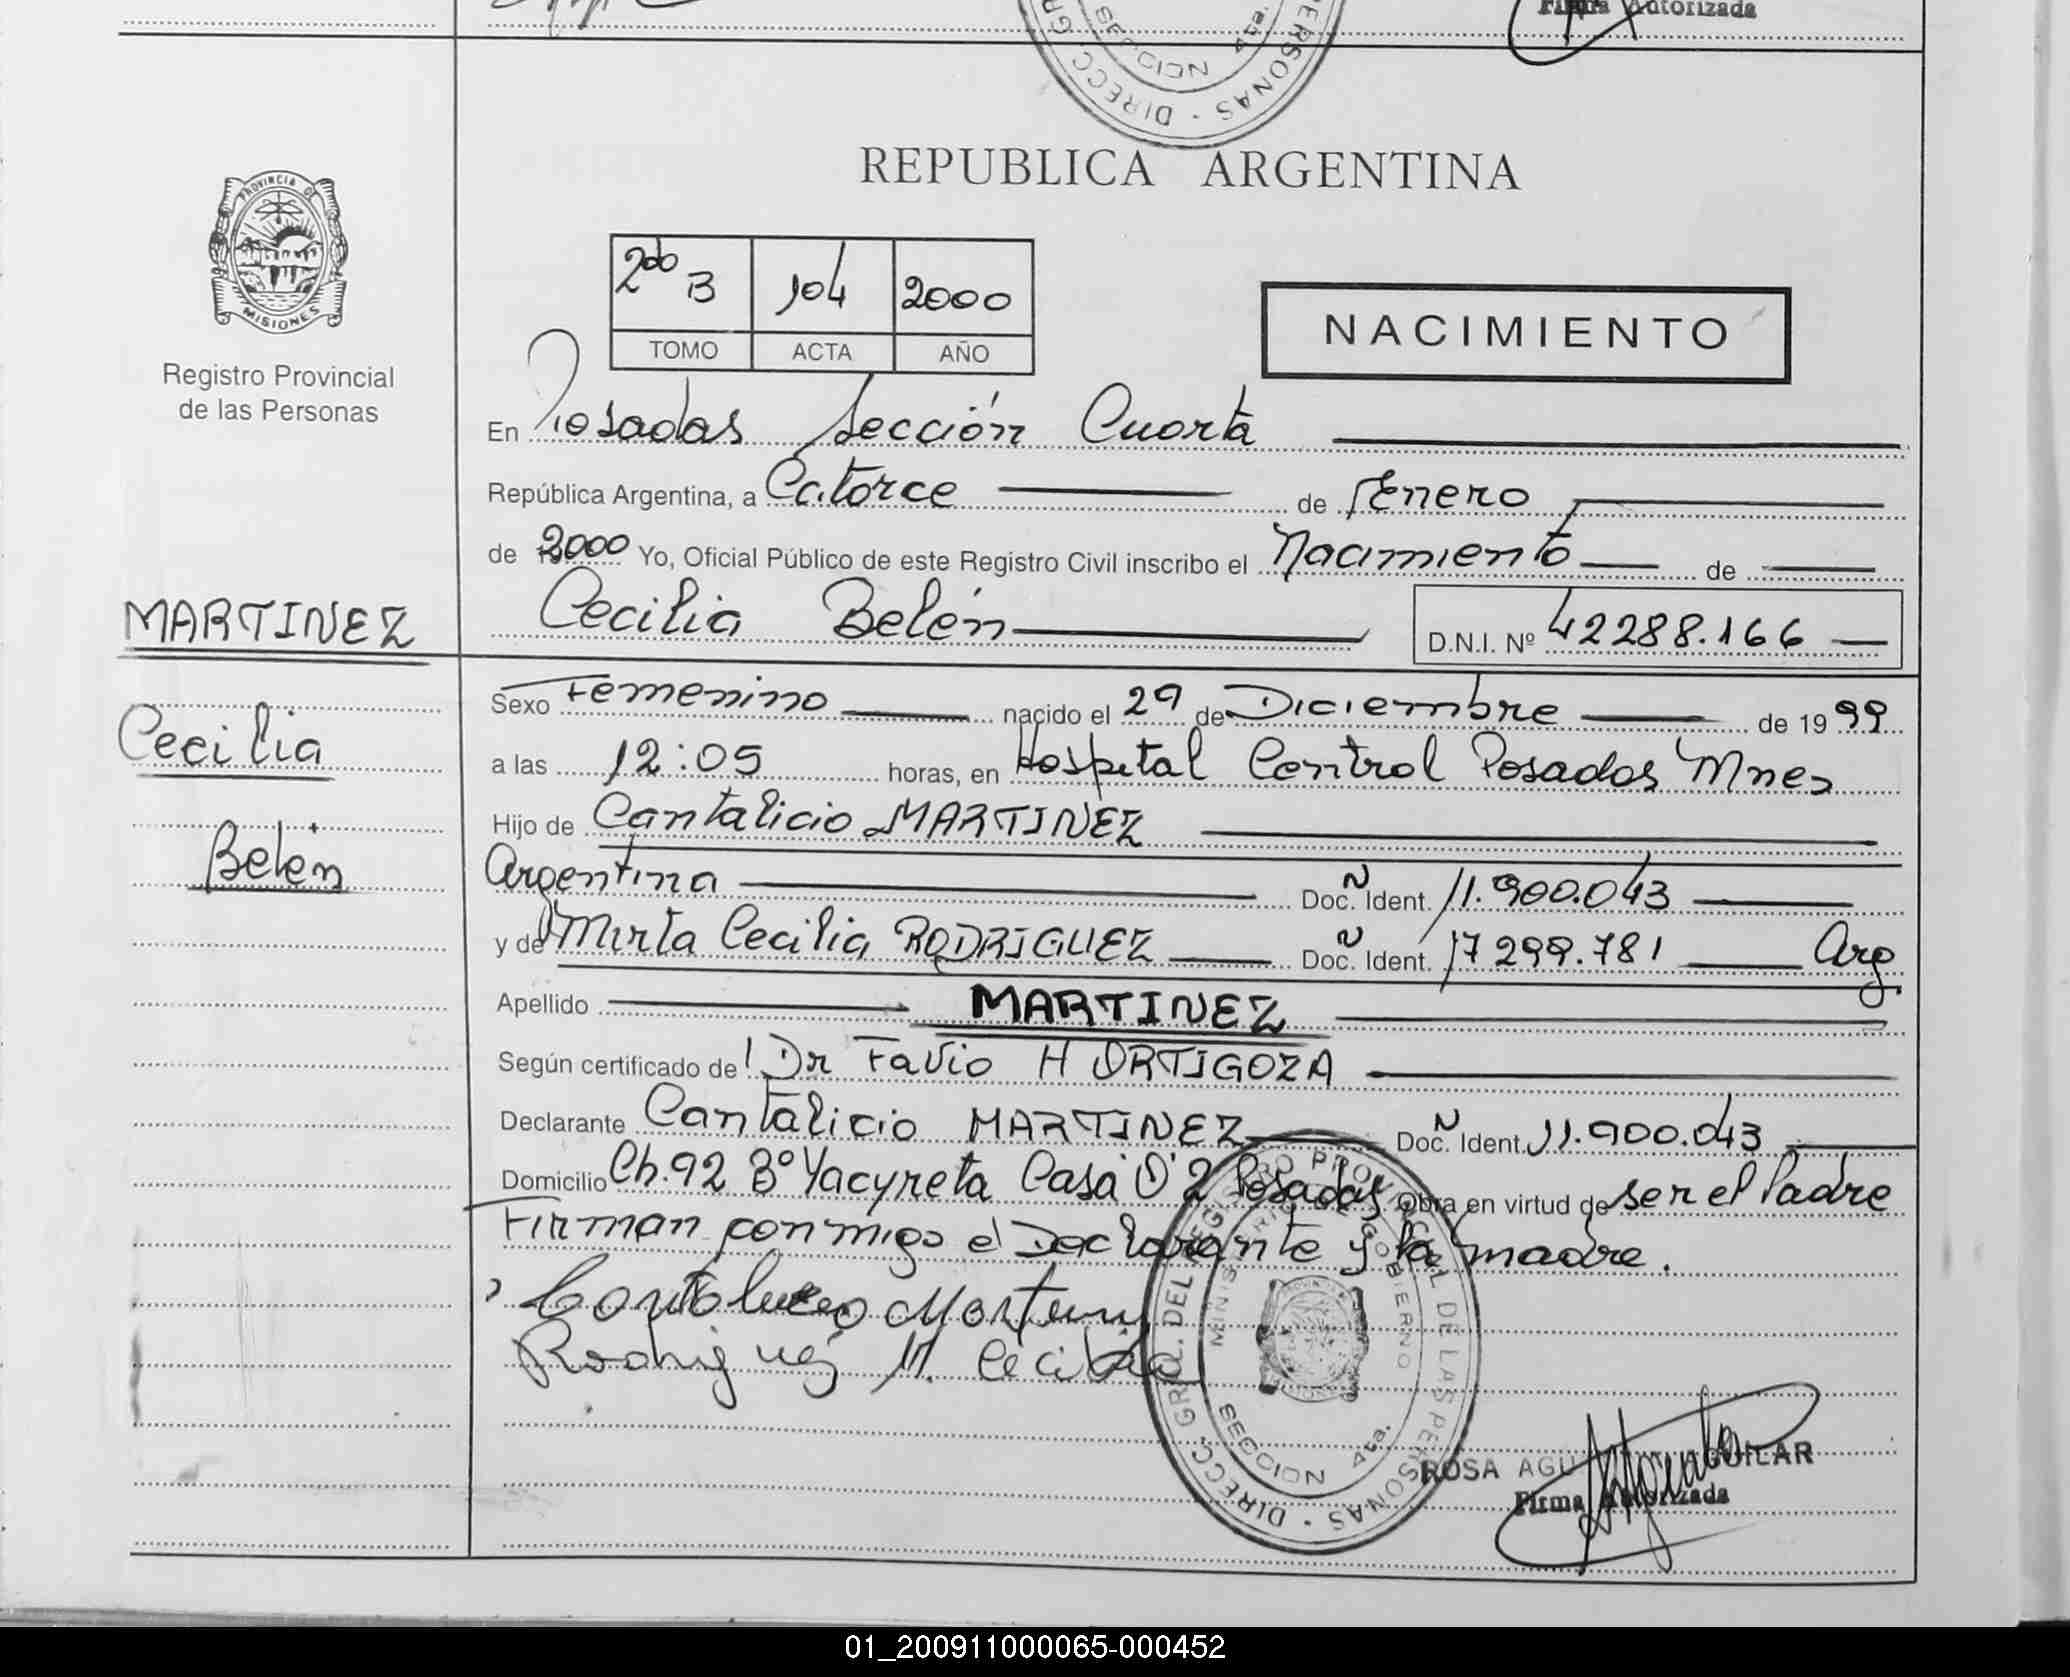 Firma Autorizada
SECCION 4ta.
DIRECC GR PERSONAS
REPUBLICA ARGENTINA
PROVINCIA DE
MISIONES
Registro Provincial
de las Personas
2do B 104 2000
TOMO ACTA AÑO
NACIMIENTO
En Posadas Sección Cuarta
República Argentina, a Catorce de Enero
de 2000 Yo, Oficial Público de este Registro Civil inscribo el Nacimiento de
Cecilia Belén D.N.I. Nº 42288.166
MARTINEZ
Cecilia
Belén
Sexo Femenino nacido el 29 de Diciembre de 1999
a las 12:05 horas, en Hospital Central Posadas Mnes
Hijo de Cantalicio MARTINEZ
Argentina Doc. Ident. 11.900.043
y de Mirta Cecilia RODRIGUEZ Doc. Ident. 17299.781 Arg
Apellido MARTINEZ
Según certificado de Dr Favio H ORTIGOZA
Declarante Cantalicio MARTINEZ Doc. Ident. 11.900.043
Domicilio Ch.92 Bº Yacyreta Casa 2 Posadas Obra en virtud de ser el Padre
Firman conmigo el Declarante y la madre.
Cantalicio Martinez
Rodriguez M. Cecilia
DIRECC GRAL. DEL REGISTRO PROVINCIAL DE LAS PERSONAS
MINISTERIO DE GOBIERNO
SECCION 4ta.
ROSA AGU AGUILAR
Firma Autorizada
01_200911000065-000452